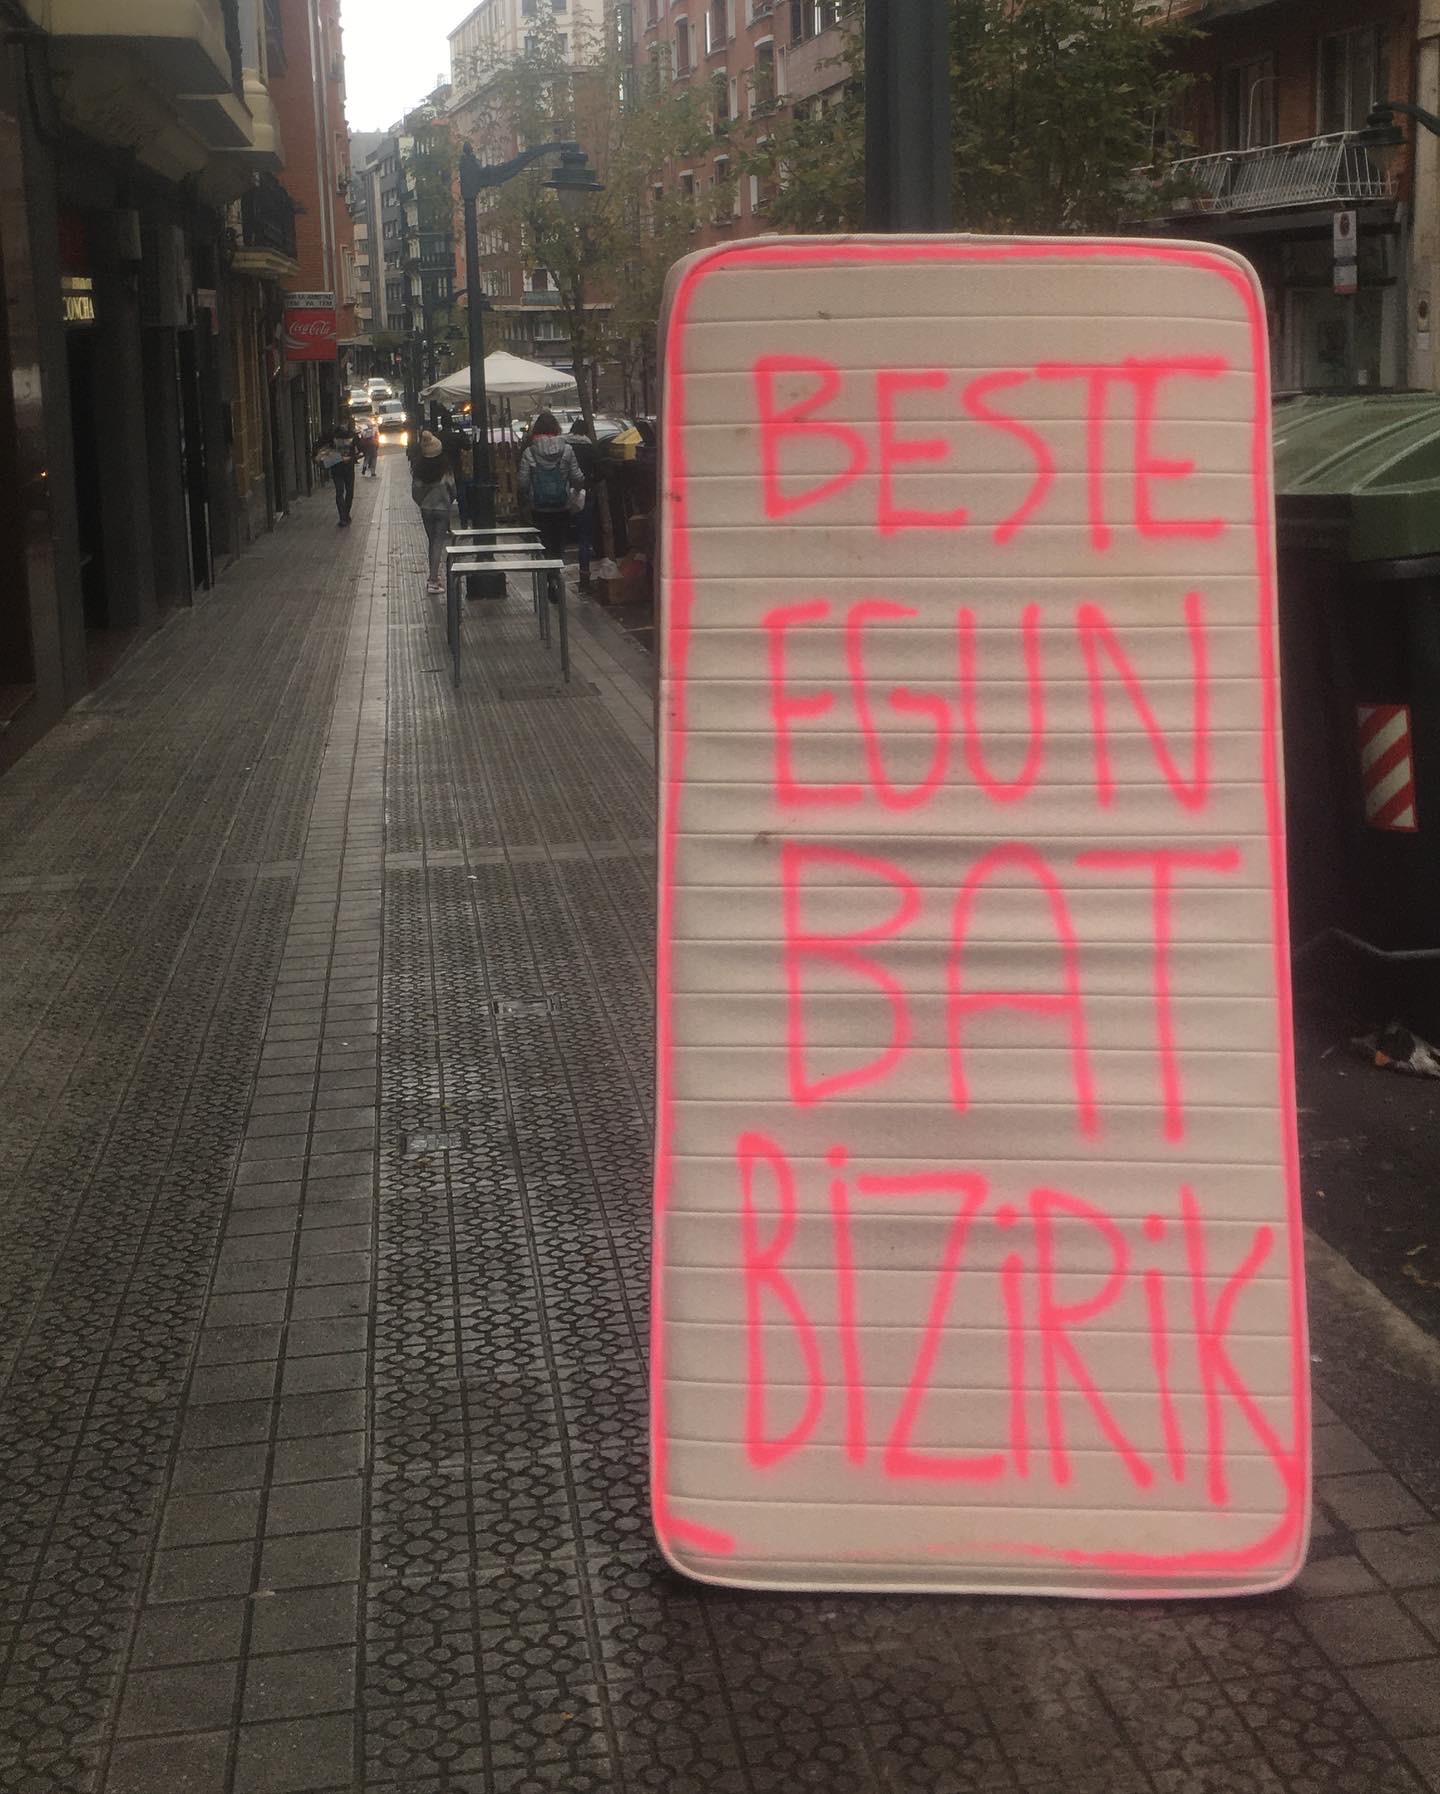 CONCHA
Coca-Cola
AMSTEL
BESTE
EGUN
BAT
BiZiRiK